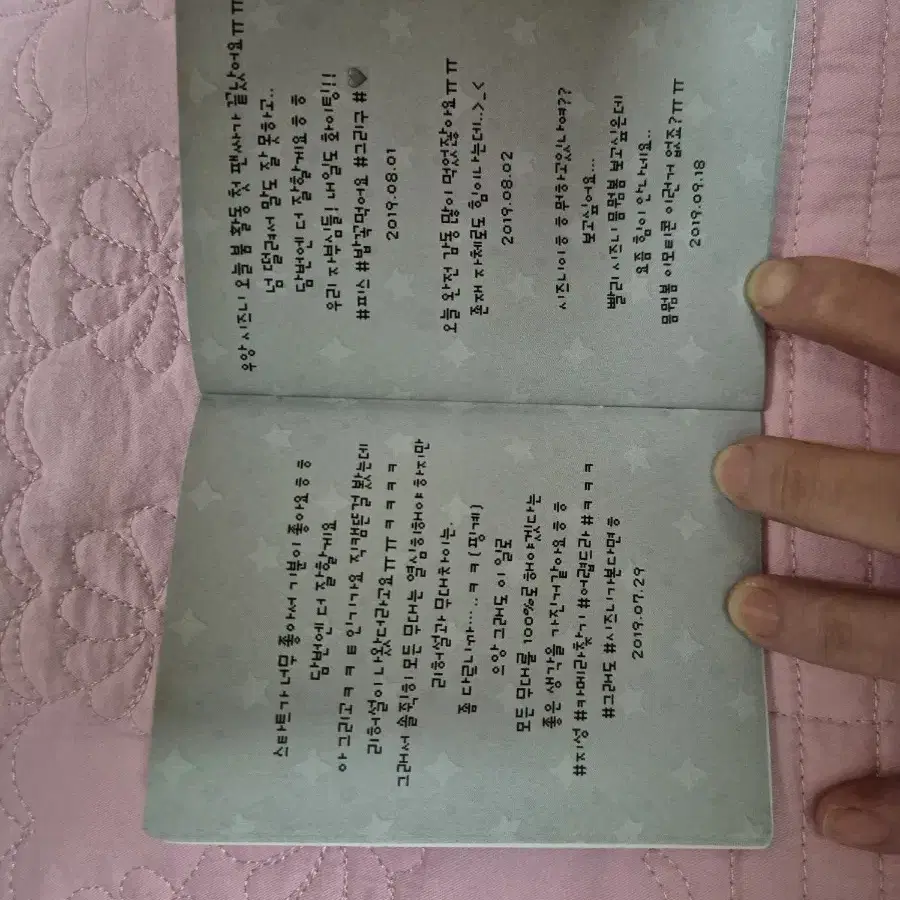 스타트가 너무 좋아서 기분이 좋아요ㅎㅎ
담번에 더 잘할게요
아 그리고ㅋㅋㅌ 인기가요 직캠뜬걸 봤는데
리허설이 나왔더라고요ㅠㅠ ㅋㅋㅋㅋ
그래서 솔직히 모든 무대는 열심히해야 하지만
리허설과 무대차이는.
좀 다르니까.....ㅋㅋ(핑계)
으앙 그래도 이 일로
모든 무대를 100%로 해야겠다는
좋은 생각을 가진거같아요ㅎㅎ
#지성 #카메라찾기 #어렵드라 #ㅋㅋㅋ
#그래도 #시즈니가본다면ㅎ
2019.07.29
우앙 시즈니 오늘 붐 활동 첫 팬싸가 끝났어요ㅠㅠ
넘 떨려서 말도 잘 못하고..
담번에 더 잘할게요ㅎㅎ
우리 자부심들! 내일도 화이팅!!
#피스 #밥꼭먹어요 #그리구 #♥
2019.08.01
오늘 완전 감동 많이 먹었잖아요ㅠㅠ
존재 자체로도 힘이나는데..>_<
2019.08.02
시즈니이ㅎㅎ뭐하고있나여??
보고싶어요...
빨리 시즈니 뭄뭠뭄 보고싶은데
요즘 힘이 안나네요..
뭄뭠뭄 이모티콘 이런거 없죠?ㅠㅠ
2019.09.18